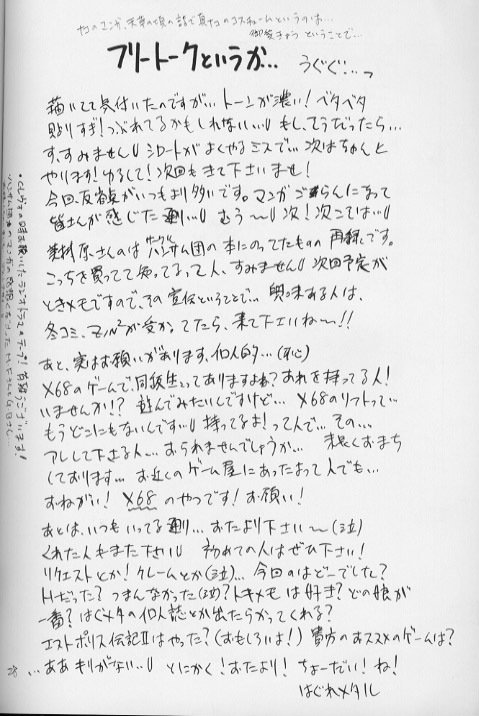 フリートークというか…
うぐぐ…っ
描いてて気付いたのですが…トーンが濃い！ベタベタ
貼りすぎ！つぶれてるかもしれない…もし、そうだったら…
す、すみません シロートがよくやるミスで…次はちゃんと
やります！ゆるして！次回もきて下さいませ！
今回、反省点がいつもより多いです。マンガごらんになって
皆さんが感じた通り… むぅ〜 次！次こそは…
さんのは ハンサム団の本にのってたものの再録です。
こっちを買ってて知ってるって人、すみません 次回予定が
ときメモですので、その宣伝ということで… 興味ある人は、
冬コミ、 が受かってたら、来て下さいね〜!!
あと、実はお願いがあります、個人的…
X68のゲームで、同級生ってありますよね？あれを持ってる人！
いませんか!? 遊んでみたいんですけど… X68のソフトって…
もうどこにもないんです 持ってるよ！って人で…その…
アレして下さる人…おられませんでしょうか… 末長くおまち
しております… お近くのゲーム屋にあったよって人でも…
おねがい！ X68 のやつです！お願い！
あとは、いつもいってる通り…おたより下さい〜(泣)
くれた人もまた下さい 初めての人はぜひ下さい！
リクエストとか！クレームとか(泣)… 今回のはどーでした？
Hだった？つまんなかった(泣)？トキメモは好き？どの娘が
一番？はぐメタの個人誌とか出たらかってくれる？
エストポリス伝記IIはやった？(おもしろいよ！) 貴方のおススメのゲームは？
…ああ きりがない… とにかく！おたより！ちょーだい！ね！
はぐれメタル